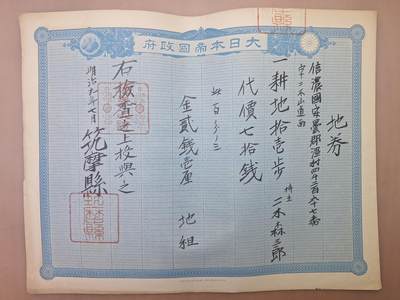 大日本帝國政府
地券
信濃國安曇郡澤村四千二百六十七番
一耕地拾壱歩 持主 二木森三郎
代價七拾銭
此百分ノ三
金貳銭壱厘 地租
右検査之上授與之
明治九年七月 筑摩縣